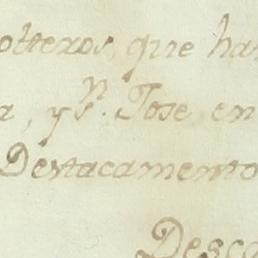 olteros, que ha
a, y Sn. Jose en
Destacamento
Desc